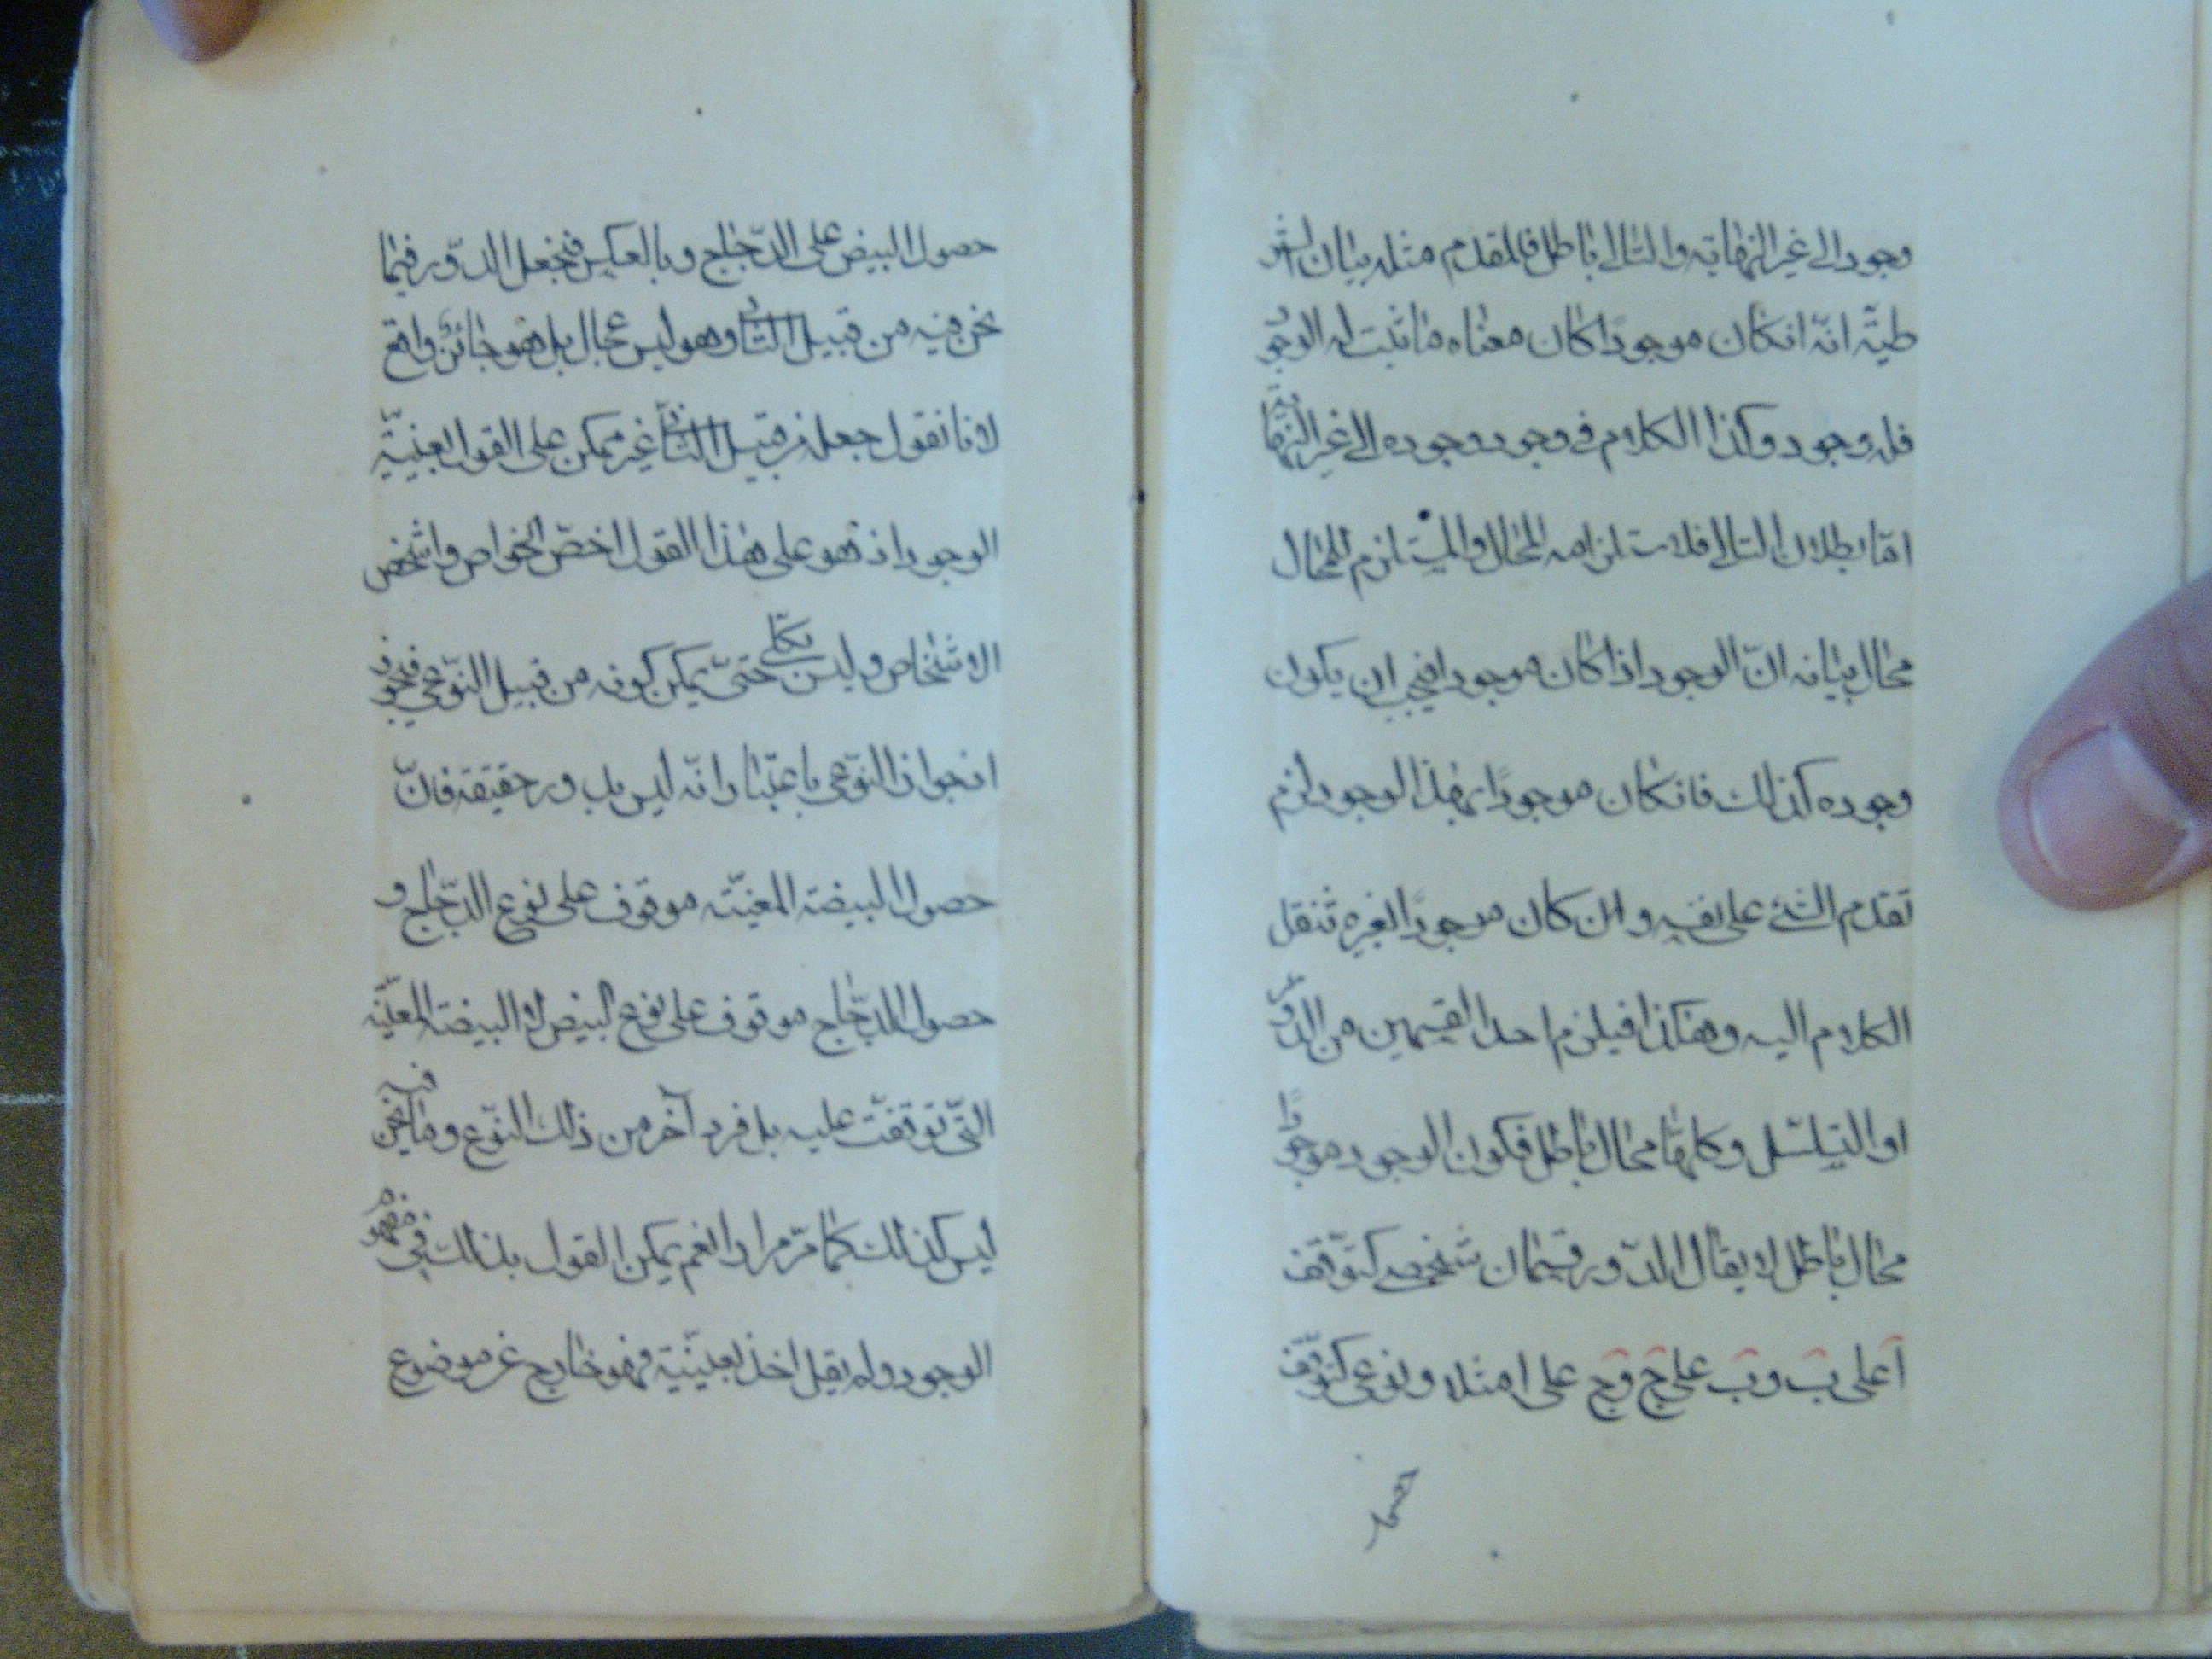 وجود الى غير النهاية والتالى باطل فالمقدم مثله بيان الشر
طيّة انّه انكان موجودًا كان معناه ما ثبت له الوجود
فله وجود وكذا الكلام فى وجود وجوده الى غير النهاية
امّا بطلان التالى فلاستلزامه المحال والمستلزم للمحال
محال بيانه انّ الوجود اذا كان موجودا فيجب ان يكون
وجوده كذلك فانكان موجودًا بهذا الوجود لزم
تقدم الشئ على نفسه وان كان موجودًا لغيره ننقل
الكلام اليه وهكذا فيلزم احد القسمين من الدّور
او التسلسل وكلاهما محال باطل فكون الوجود موجودًا
محال باطل لا يقال الدّور قسمان شخصى كتوقّف
آ على ب وب على ج وج على ا مثلا ونوعى كتوقّف
حصول
حصول البيض على الدّجاج وبالعكس فنجعل الدّور فيما
نحن فيه من قبيل الثانى وهو ليس بمحال بل هو جائز وواقع
لانا نقول جعله من قبيل الثانى غير ممكن على القول بعينيّة
الوجود اذ هو على هذا القول اخصّ الخواص واشخص
الاشخاص وليس بكلّى حتىّ يمكن كونه من قبيل النّوعى فيجوز
انجواز النّوعى باعتبار انّه ليس بدور حقيقة فانّ
حصول البيضة المعيّنة موقوف على نوع الدّجاج و
حصول الدّجاج موقوف على نوع البيض لا البيضة المعيّنة
التّى توقفت عليه بل فرد آخر من ذلك النّوع وما نحن فيه
ليس كذلك كما مرّ مرارا نعم يمكن القول بذلك فى مفهوم
الوجود ولم يقل احد بعينيّة فهو خارج عن موضوع